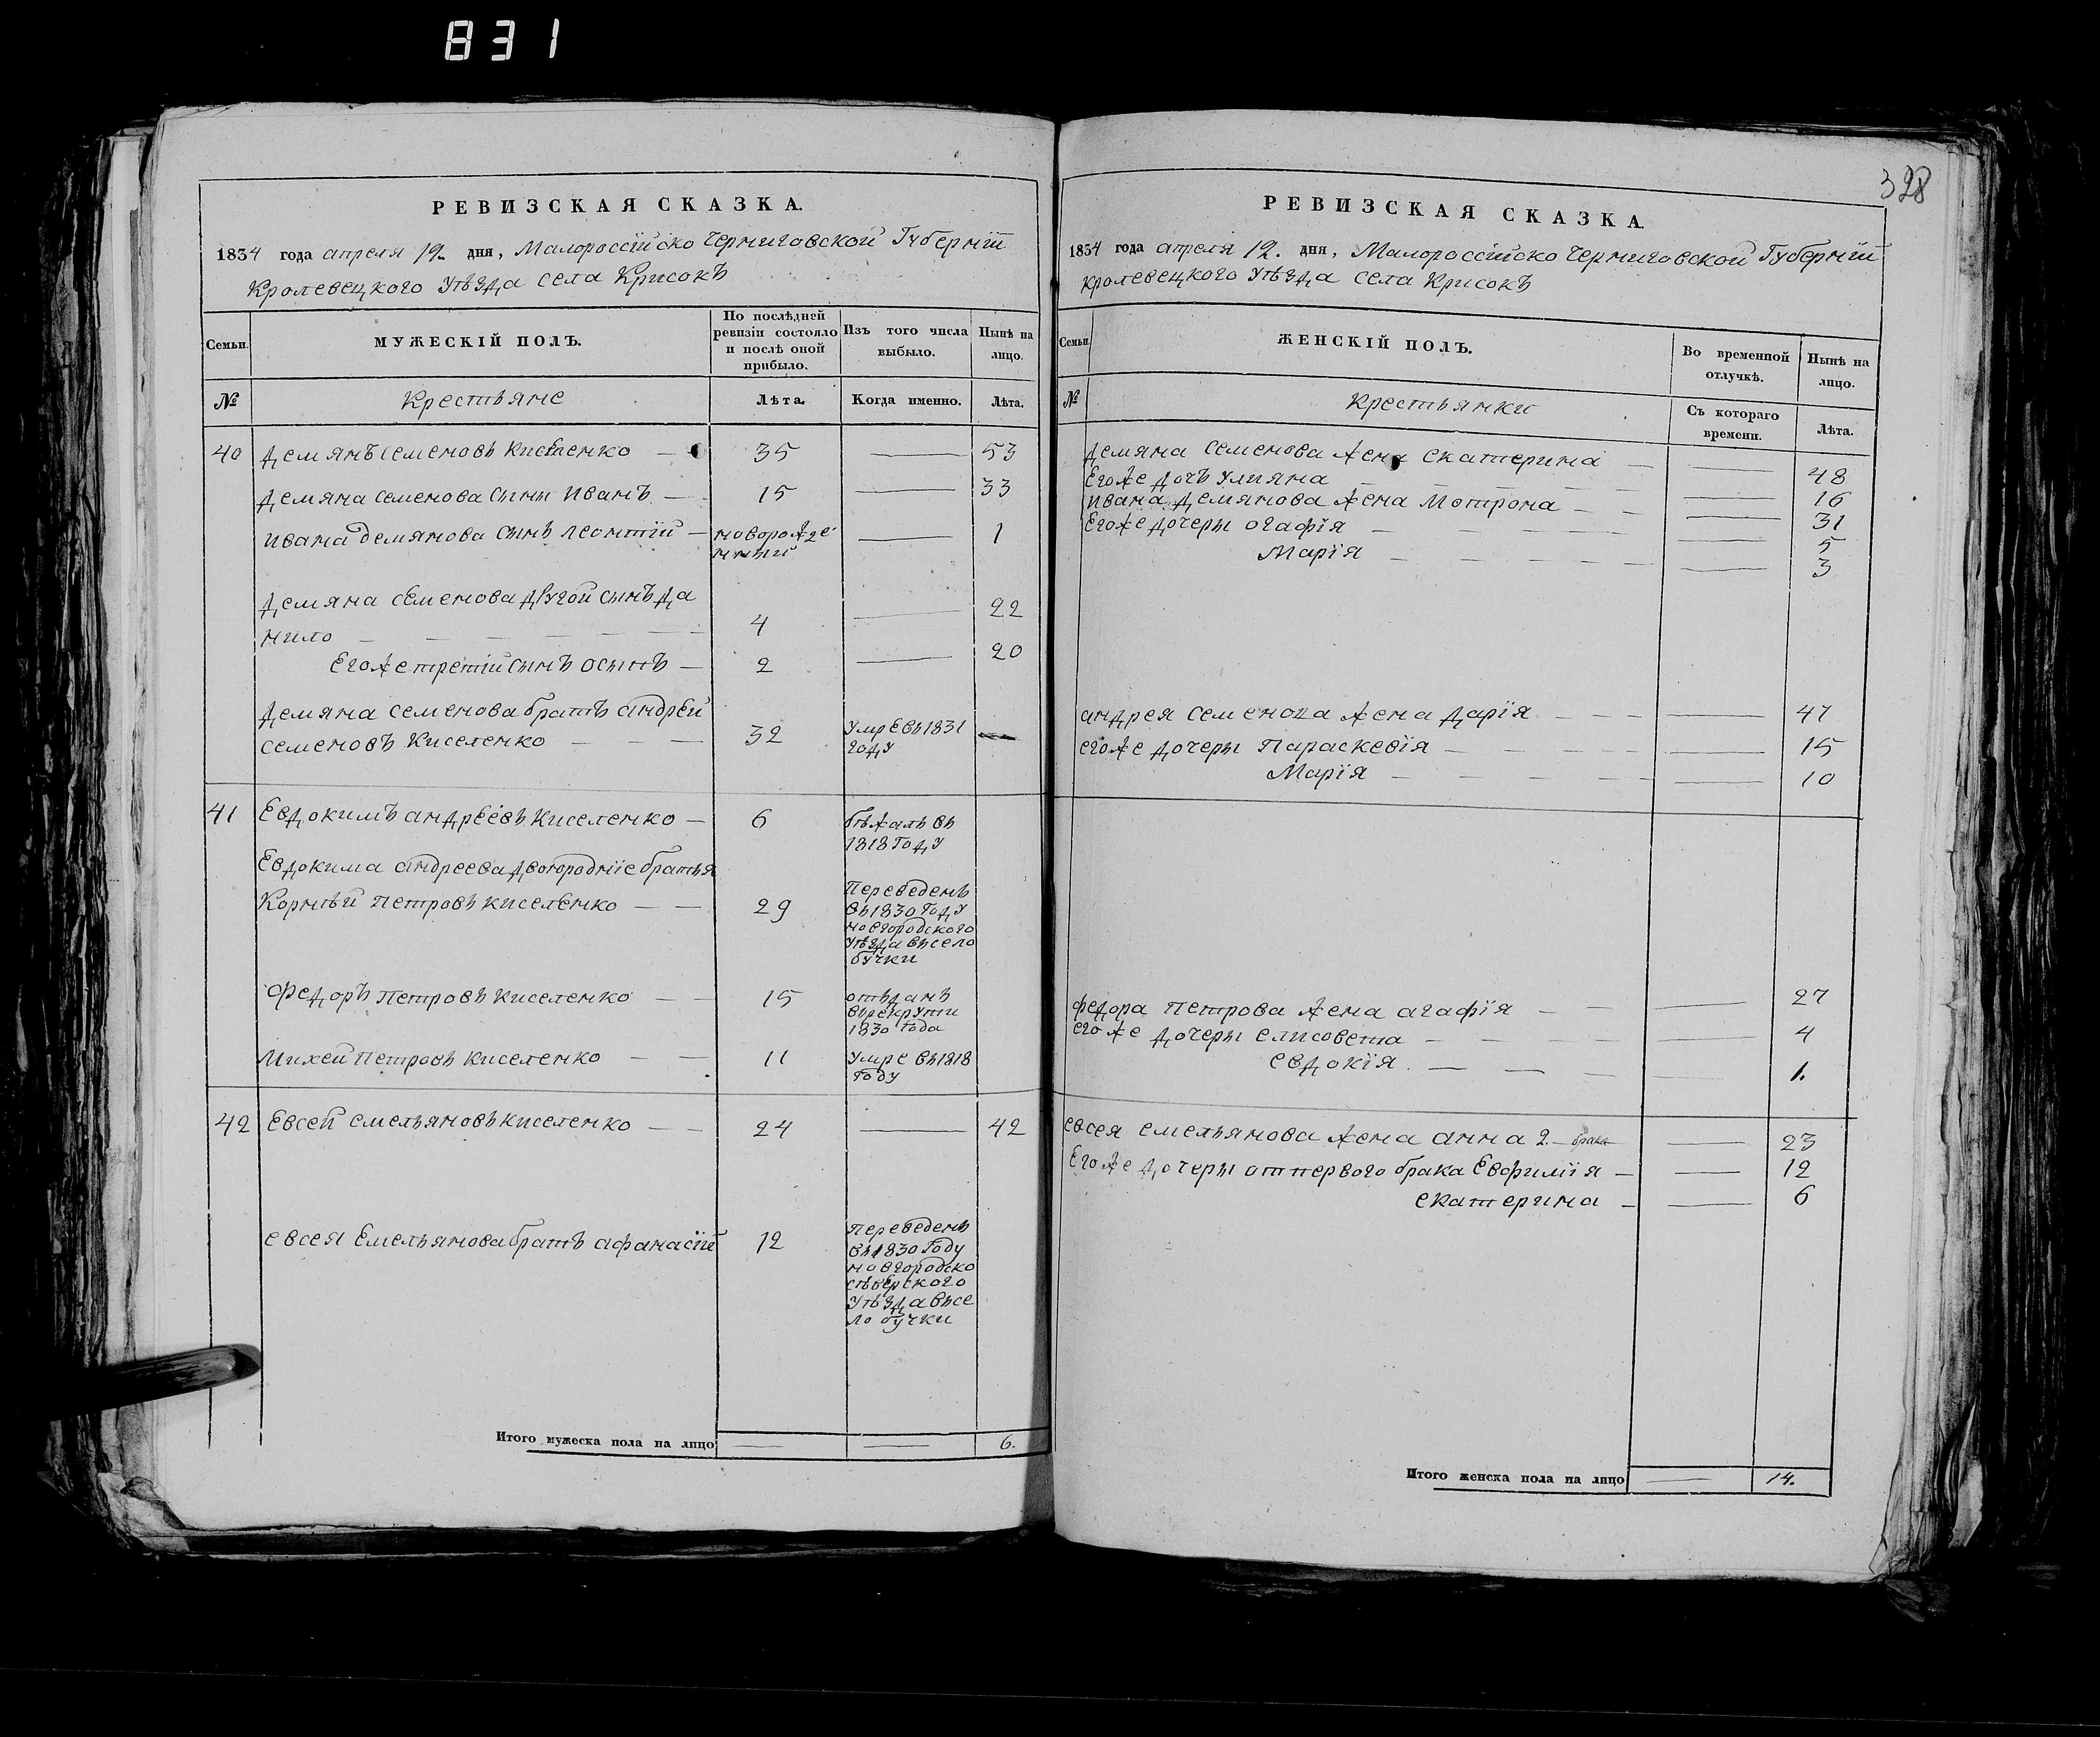 831
РЕВИЗСКАЯ СКАЗКА.
1834 года апреля 12 дня, Малороссійско Черниговской Губерніи
Кролевецкого Уѣзда села Крисокъ
Семьи.
МУЖЕСКІЙ ПОЛЪ.
По послѣдней ревизіи состояло и послѣ оной прибыло.
Изъ того числа выбыло.
Нынѣ на лицо.
№ Крестьяне Лѣта. Когда именно. Лѣта.
40 Демянъ Семеновъ Киселенко — 35 — 53
Демяна Семенова сыны Иванъ — 15 — 33
Ивана Демянова сынъ Леонтій — новорожде — 1
нный
Демяна Семенова другой сынъ Да
нило — — — — — — 4 — 22
Егоже третій сынъ Осыпъ — 2 — 20
Демяна Семенова братъ андрей
Семеновъ Киселенко — — — 32 Умре въ 1831 —
году
41 Евдокимъ андреевъ Киселенко — 6 бѣжалъ въ
1818 Году
Евдокима андреева двоюродніе братья
Корнѣй Петровъ Киселенко — — 29 Переведенъ
въ 1830 Году
новгородского
уѣзда въ село
бучки
Федоръ Петровъ Киселенко — — 15 отъданъ
въ рекруты
1830 года
Михей Петровъ Киселенко — — 11 Умре въ 1818
году
42 Евсей Емельяновъ Киселенко — — 24 — 42
евсея Емельянова братъ афанасій 12 Переведенъ
въ 1830 Году
новгородско
сѣверского
Уѣзда въ се
ло бучки
Итого мужеска пола на лицо — — 6.
328
РЕВИЗСКАЯ СКАЗКА
1834 года апреля 12. дня, Малороссійско Черниговской Губерніи
Кролевецкого Уѣзда села Крисокъ
Семьи.
ЖЕНСКІЙ ПОЛЪ.
Во временной отлучкѣ.
Нынѣ на лицо.
№ Крестьянки Съ котораго времени. Лѣта.
Демяна Семенова жена екатерина — — 48
Егоже дочь Улияна — — — — — 16
Ивана Демянова жена Мотрона — — — 31
Егоже дочеры огафія — — — — — 5
Марія — — — — — — 3
андрея Семенова жена Дарія — — — — 47
егоже дочеры Параскевія — — — — — 15
Марія — — — — — 10
федора Петрова жена агафія — — — 27
егоже дочеры елисовета — — — — — 4
евдокія. — — — — 1.
евсея емельянова жена анна 2.— брака — 23
Егоже дочеры от первого брака Евфимія — — 12
екатерина — — 6
Итого женска пола на лицо — 14.